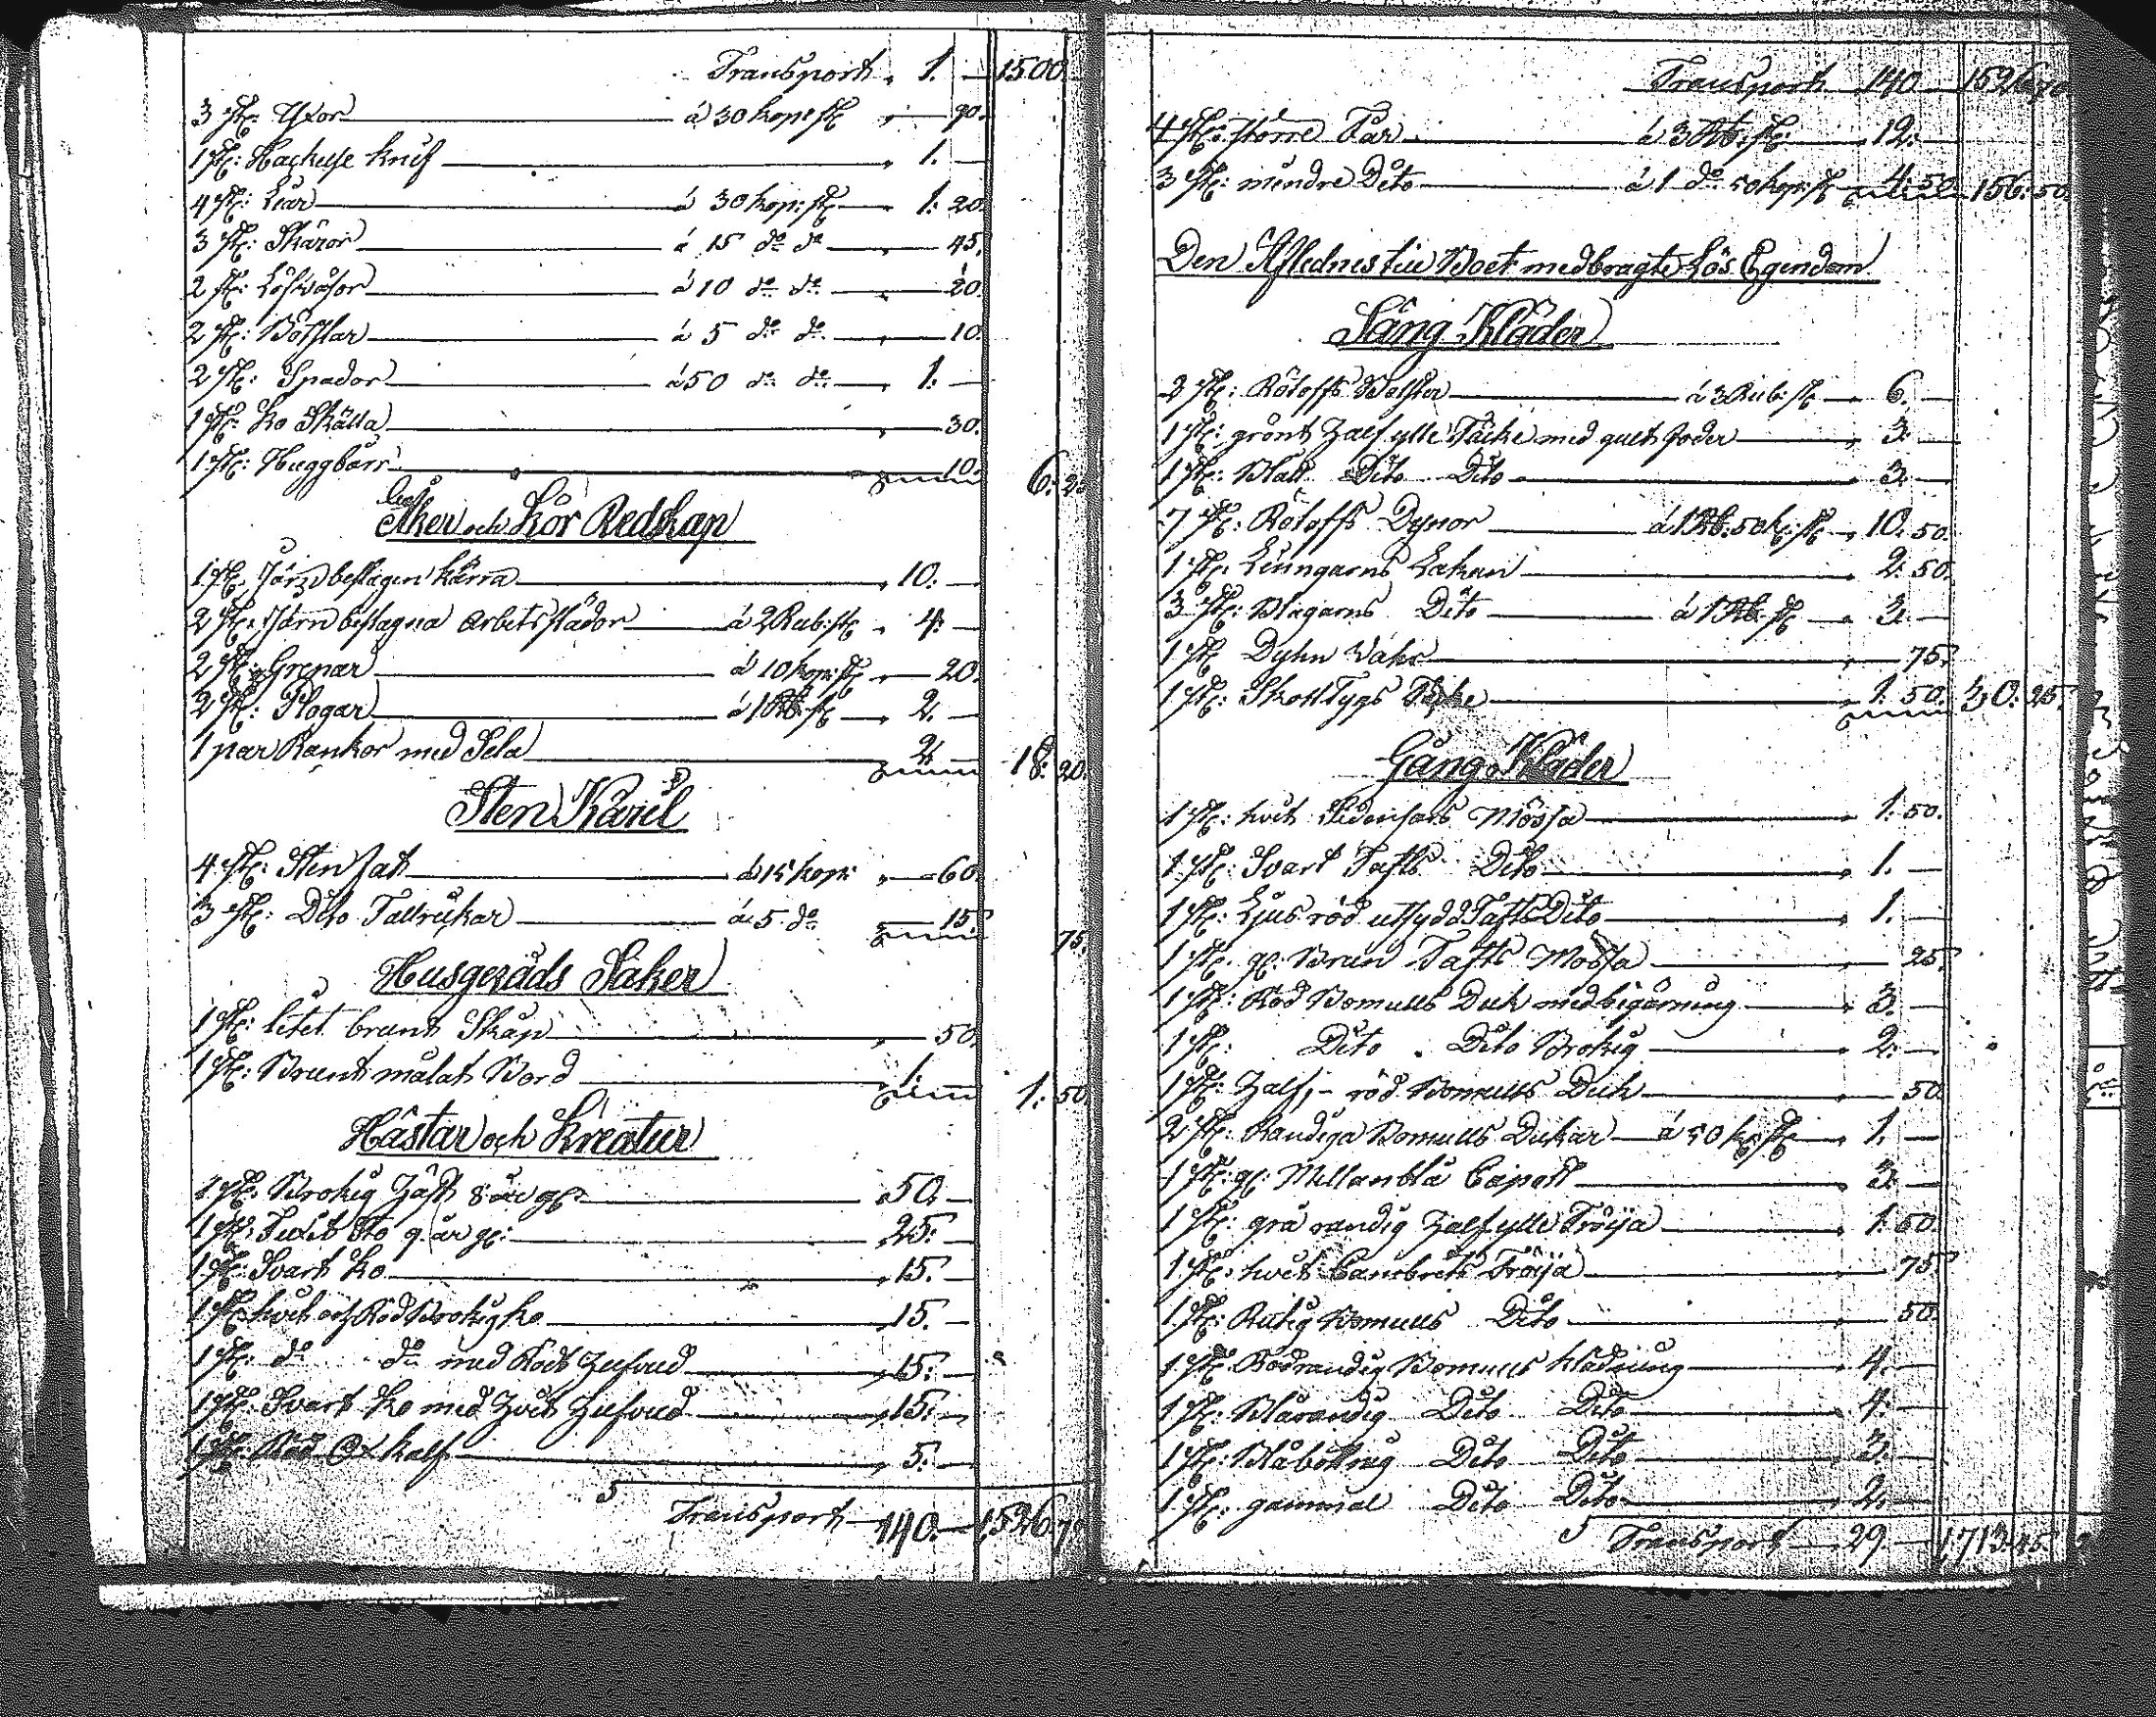 Transport „ 1. — 1500
3 st: Yxor á 30 kop: st „ — 90.
1 st: Hackelse knif „ 1. —
4 st: Liar á 30 kop: st „ 1: 20
3 st: Skäror á 15 do do „ 45.
2 st: á 10 do do „ 20.
2 st: á 5 do do „ 10.
2 st: Spador á 50 do do „ 1. —
1 st: Ko Skälla „ 30.
1 st: Huggbarr 10. 6: 25
Åker och Kör Redskap
1 st. Järn beslagen kärra „ 10. —
2 st. Järn beslagna arbets slädor á 2 Rub: st „ 4. —
2 st. Grepar á 10 kop: st „ 20.
2 st: Plogar á 1 Rb: st „ 2. —
1 par Rankor med Sela 2. — 18: 20.
Sten Käril
4 st: Sten fat á 15 kop: „ — 60.
3 st: Dito Tallrickar á 5 do 15. 75.
Husgeråds Saker
1 st: litet brunt Skåp „ 50.
1 st: Brunt målat Bord 1. 1: 50.
Hästar och Kreatur
1 st. Brokig Häst 8 år gl: „ 50. —
1 st. Sto 9 år gl: „ 25: —
1 st: Svart Ko „ 15. —
1 st: hvit och Röd Brokig ko „ 15. —
1 st: do do med Rödt Hufvud „ 15: —
1 st: Svart Ko med Hvit Hufvud „ 15: —
1 st: Röd Ox kalf „ 5: —
Transport 140. — 1,526: 70
Transport 140 — 1526: 70
4 st: större Får á 3 Rb: st: „ 12: —
3 st: mindre Dito á 1 do 50 kop: st 4: 50. 156: 50.
Den Aflednes till Boet medbragte Lös Egendom
Säng Kläder
2 st: Bolster á 3 Rub: st „ 6. —
1 st: grönt Half ylle Täcke med gult foder „ 3. —
1 st: Blått Dito Dito „ 3. —
7 st: Dynor á 1 Rb: 50 k: st „ 10: 50.
1 st. Lakan „ 2. 50.
3 st: Blagarns Dito á 1 Rb: st „ 3. —
1 st Dyhn Vahr „ 75.
1 st: Tygs Täcke 1. 50. 30: 25.
Gång Kläder
1 st: hvit Mössa „ 1: 50.
1 st: Svart Tafts Dito „ 1. —
1 st: Ljus röd utsydd Tafts Dito „ 1. —
1 st. gl: Brun Tafts Mössa „ 25.
1 st: Röd Bomulls Duk med bigarning „ 3. —
1 st: Dito Dito Brokig „ 2. —
1 st: Half,- röd Bomulls Duk „ 50
2 st: Randiga Bomulls Dukar á 50 k: st „ 1. —
1 st: gl: Mellanblå Capott „ 3. —
1 st: grå randig Half ylle Tröija „ 1. 50.
1 st: hvit Cambrits Tröija „ 75.
1 st: Rutig Bomulls Dito „ 50.
1 st: Rödrandig Bomulls Klädning „ 4. —
1 st: Blårandig Dito Dito „ 4. —
1 st: Blåbottnig Dito Dito „ 3. —
1 st: gammal Dito Dito „ 2. —
Transport — 29. — 1,713: 45.